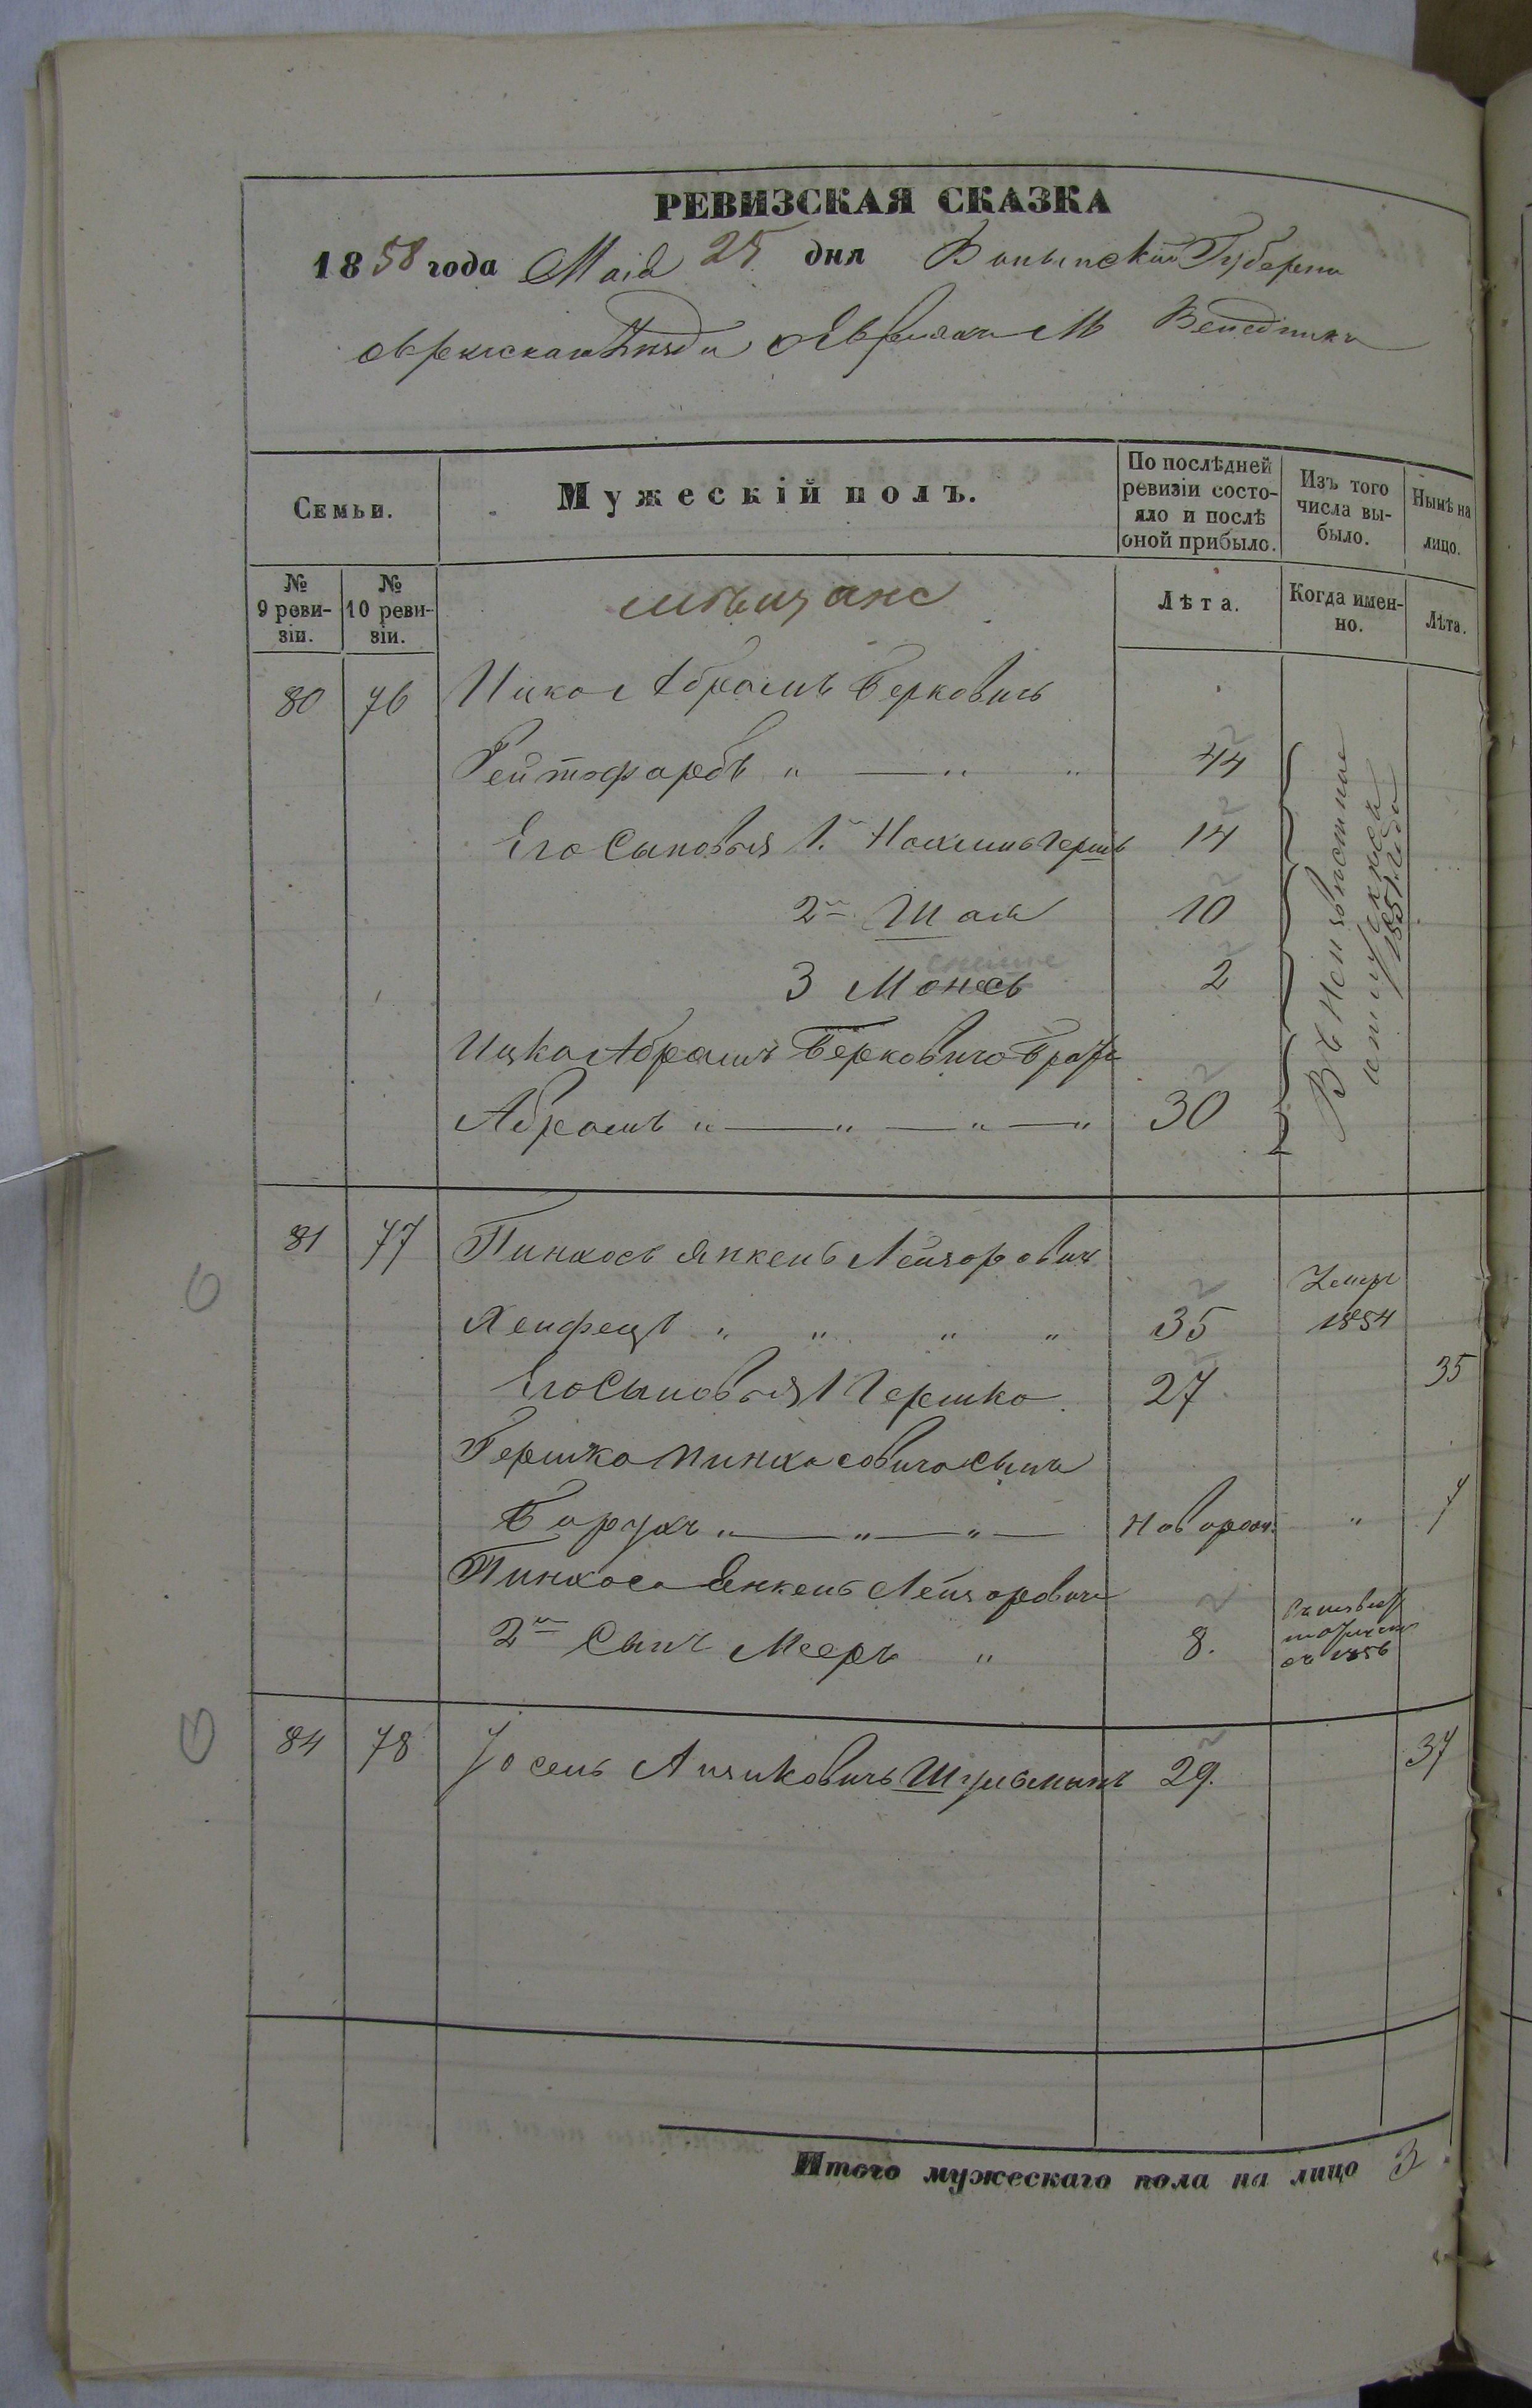 РЕВИЗСКАЯ СКАЗКА
1858 года Маiя 25 дня Волынской Губернiи
Овручскаго Уѣзда о Евреяхъ М Веледникъ
Семьи.
Мужескiй полъ.
По послѣдней ревизiи состо-
яло и послѣ оной прибыло.
Изъ того числа вы-
было.
Нынѣ на лицо.
№ 9 реви-
зiи.
№ 10 реви-
зiи.
мѣщане
Лѣта.
Когда имен-
но.
Лѣта.
80 76 Ицко Абрамъ Берковичь
Рейтфарбъ " — " " 44
Его Сыновья 1. Нахманъ Гершъ 14
2й Шая 10
3 Монесъ 2
Ицко Абрамъ Берковича Братъ
Абрамъ " — " — " — " 30
въ Неизвѣстной отлучкѣ съ 1851 года
81 77 Пинхосъ Янкель Лейзоровичъ
Хейфецъ " " " " 35 Умеръ 1854
Его Сыновья 1 Гершко 27 35
Гершка Пинхасовича Сынъ
Борухъ " — " — " — Новорож. " 7
Пинхоса Янкель Лейзоровича
2й Сынъ Мееръ " 8. 1856
84 78 Іосель Айзиковичь Шульманъ 29. 37
Итого мужескаго пола на лицо 3